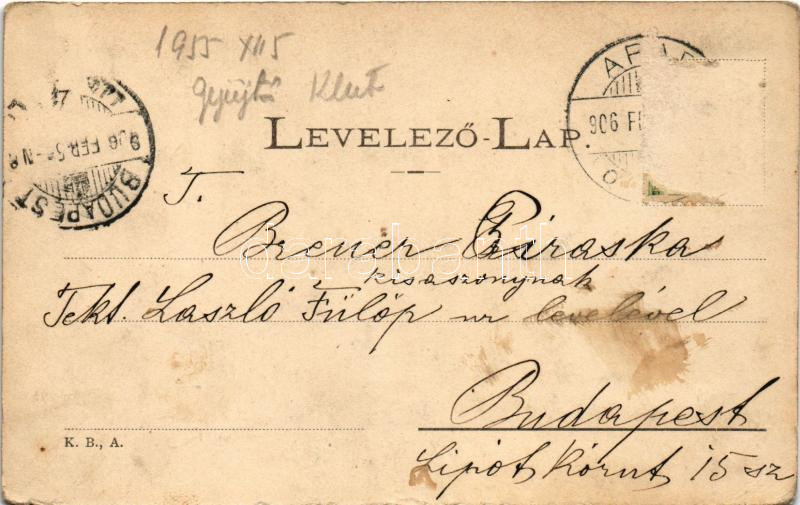 1955 XII 5
gyüjtő Klub
LEVELEZŐ-LAP.
906 FE
BUDAPEST
906 FEB 5
T.
Brener Piroska
kisaszonynak
Tekt. László Fülöp ur levelével
Budapest
Lipót Körut 15 sz
K. B., A.
darabanth